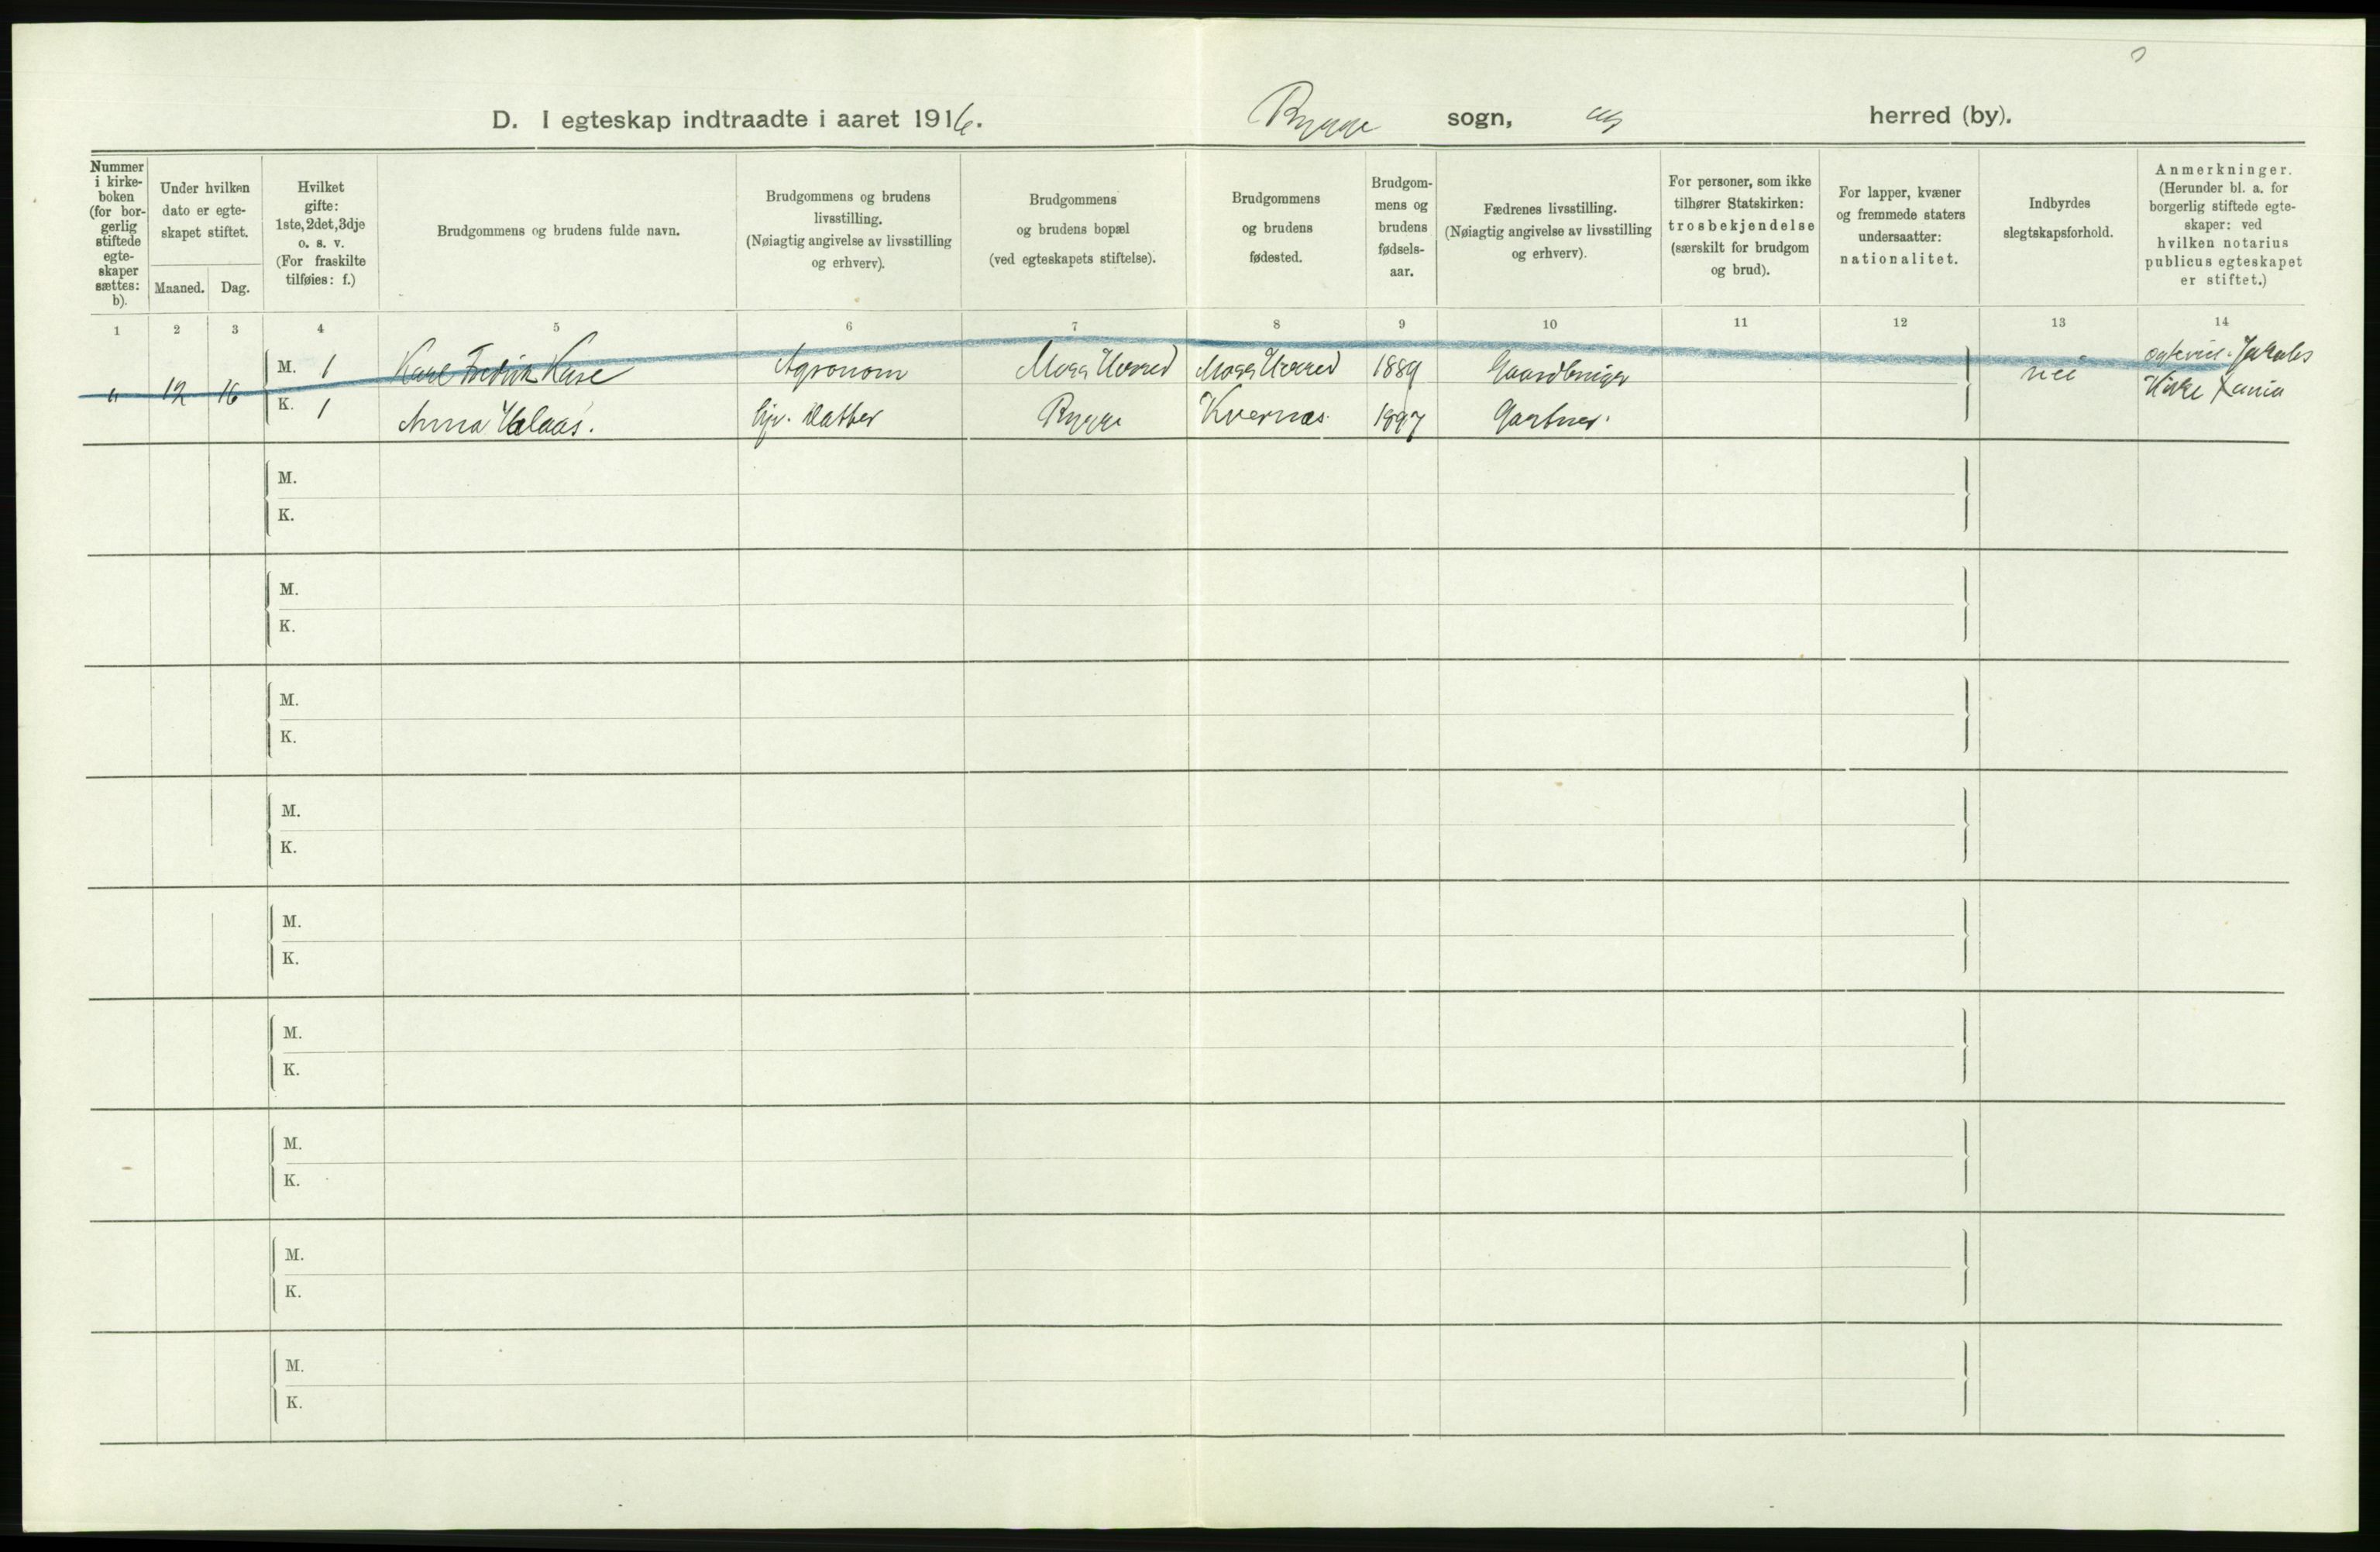 D. I egteskap indtraadte i aaret 1916. Rygge sogn, herred (by).
Nummer i kirke-boken (for bor-gerlig stiftede egte-skaper sættes: b).
Under hvilken dato er egte-skapet stiftet.
Maaned. Dag.
Hvilket gifte: 1ste, 2det, 3dje o. s. v. (For fraskilte tilføies: f.)
Brudgommens og brudens fulde navn.
Brudgommens og brudens livsstilling. (Nøiagtig angivelse av livsstilling og erhverv).
Brudgommens og brudens bopæl (ved egteskapets stiftelse).
Brudgommens og brudens fødested.
Brudgom-mens og brudens fødsels-aar.
Fædrenes livsstilling. (Nøiagtig angivelse av livsstilling og erhverv).
For personer, som ikke tilhører Statskirken: trosbekjendelse (særskilt for brudgom og brud).
For lapper, kvæner og fremmede staters undersaatter: nationalitet.
Indbyrdes slegtskapsforhold.
Anmerkninger. (Herunder bl. a. for borgerlig stiftede egte-skaper: ved hvilken notarius publicus egteskapet er stiftet.)
1 2 3 4 5 6 7 8 9 10 11 12 13 14
" 12 16
M. 1 Karl Fredrik Agronom Moss Herred Moss Herred 1889 Gaardbruger nei Jakobs
K. 1 Anna Rygge Kvernes 1897 Gartner. Kirke Xania
M.
K.
M.
K.
M.
K.
M.
K.
M.
K.
M.
K.
M.
K.
M.
K.
M.
K.